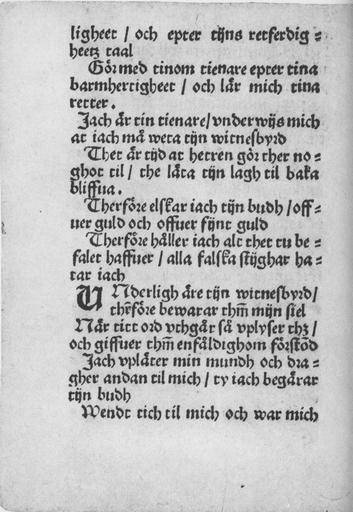 ligheet / och epter tijns retferdig =
heetz taal
Gör med tinom tienare epter tina
barmhertigheet / och lär mich tina
retter.
Jach är tin tienare / vnderwijs mich
at iach må weta tijn witnesbyrd
Thet är tijd at herren gör ther no =
ghot til / the låta tijn lagh til baka
bliffua.
Therföre elskar iach tijn budh / off =
uer guld och offuer fijnt guld
Therföre håller iach alt thet tu be =
falet haffuer / alla falska stijghar ha =
tar iach
UNderligh äre tijn witnesbyrd /
thr̄före bewarar thm̄ mijn siel
När titt ord vthgår så vplyser thz /
och giffuer thm̄ enfåldighom förstōd
Jach vplåter min mundh och dra =
gher andan til mich / ty iach begärar
tijn budh
Wendt tich til mich och war mich